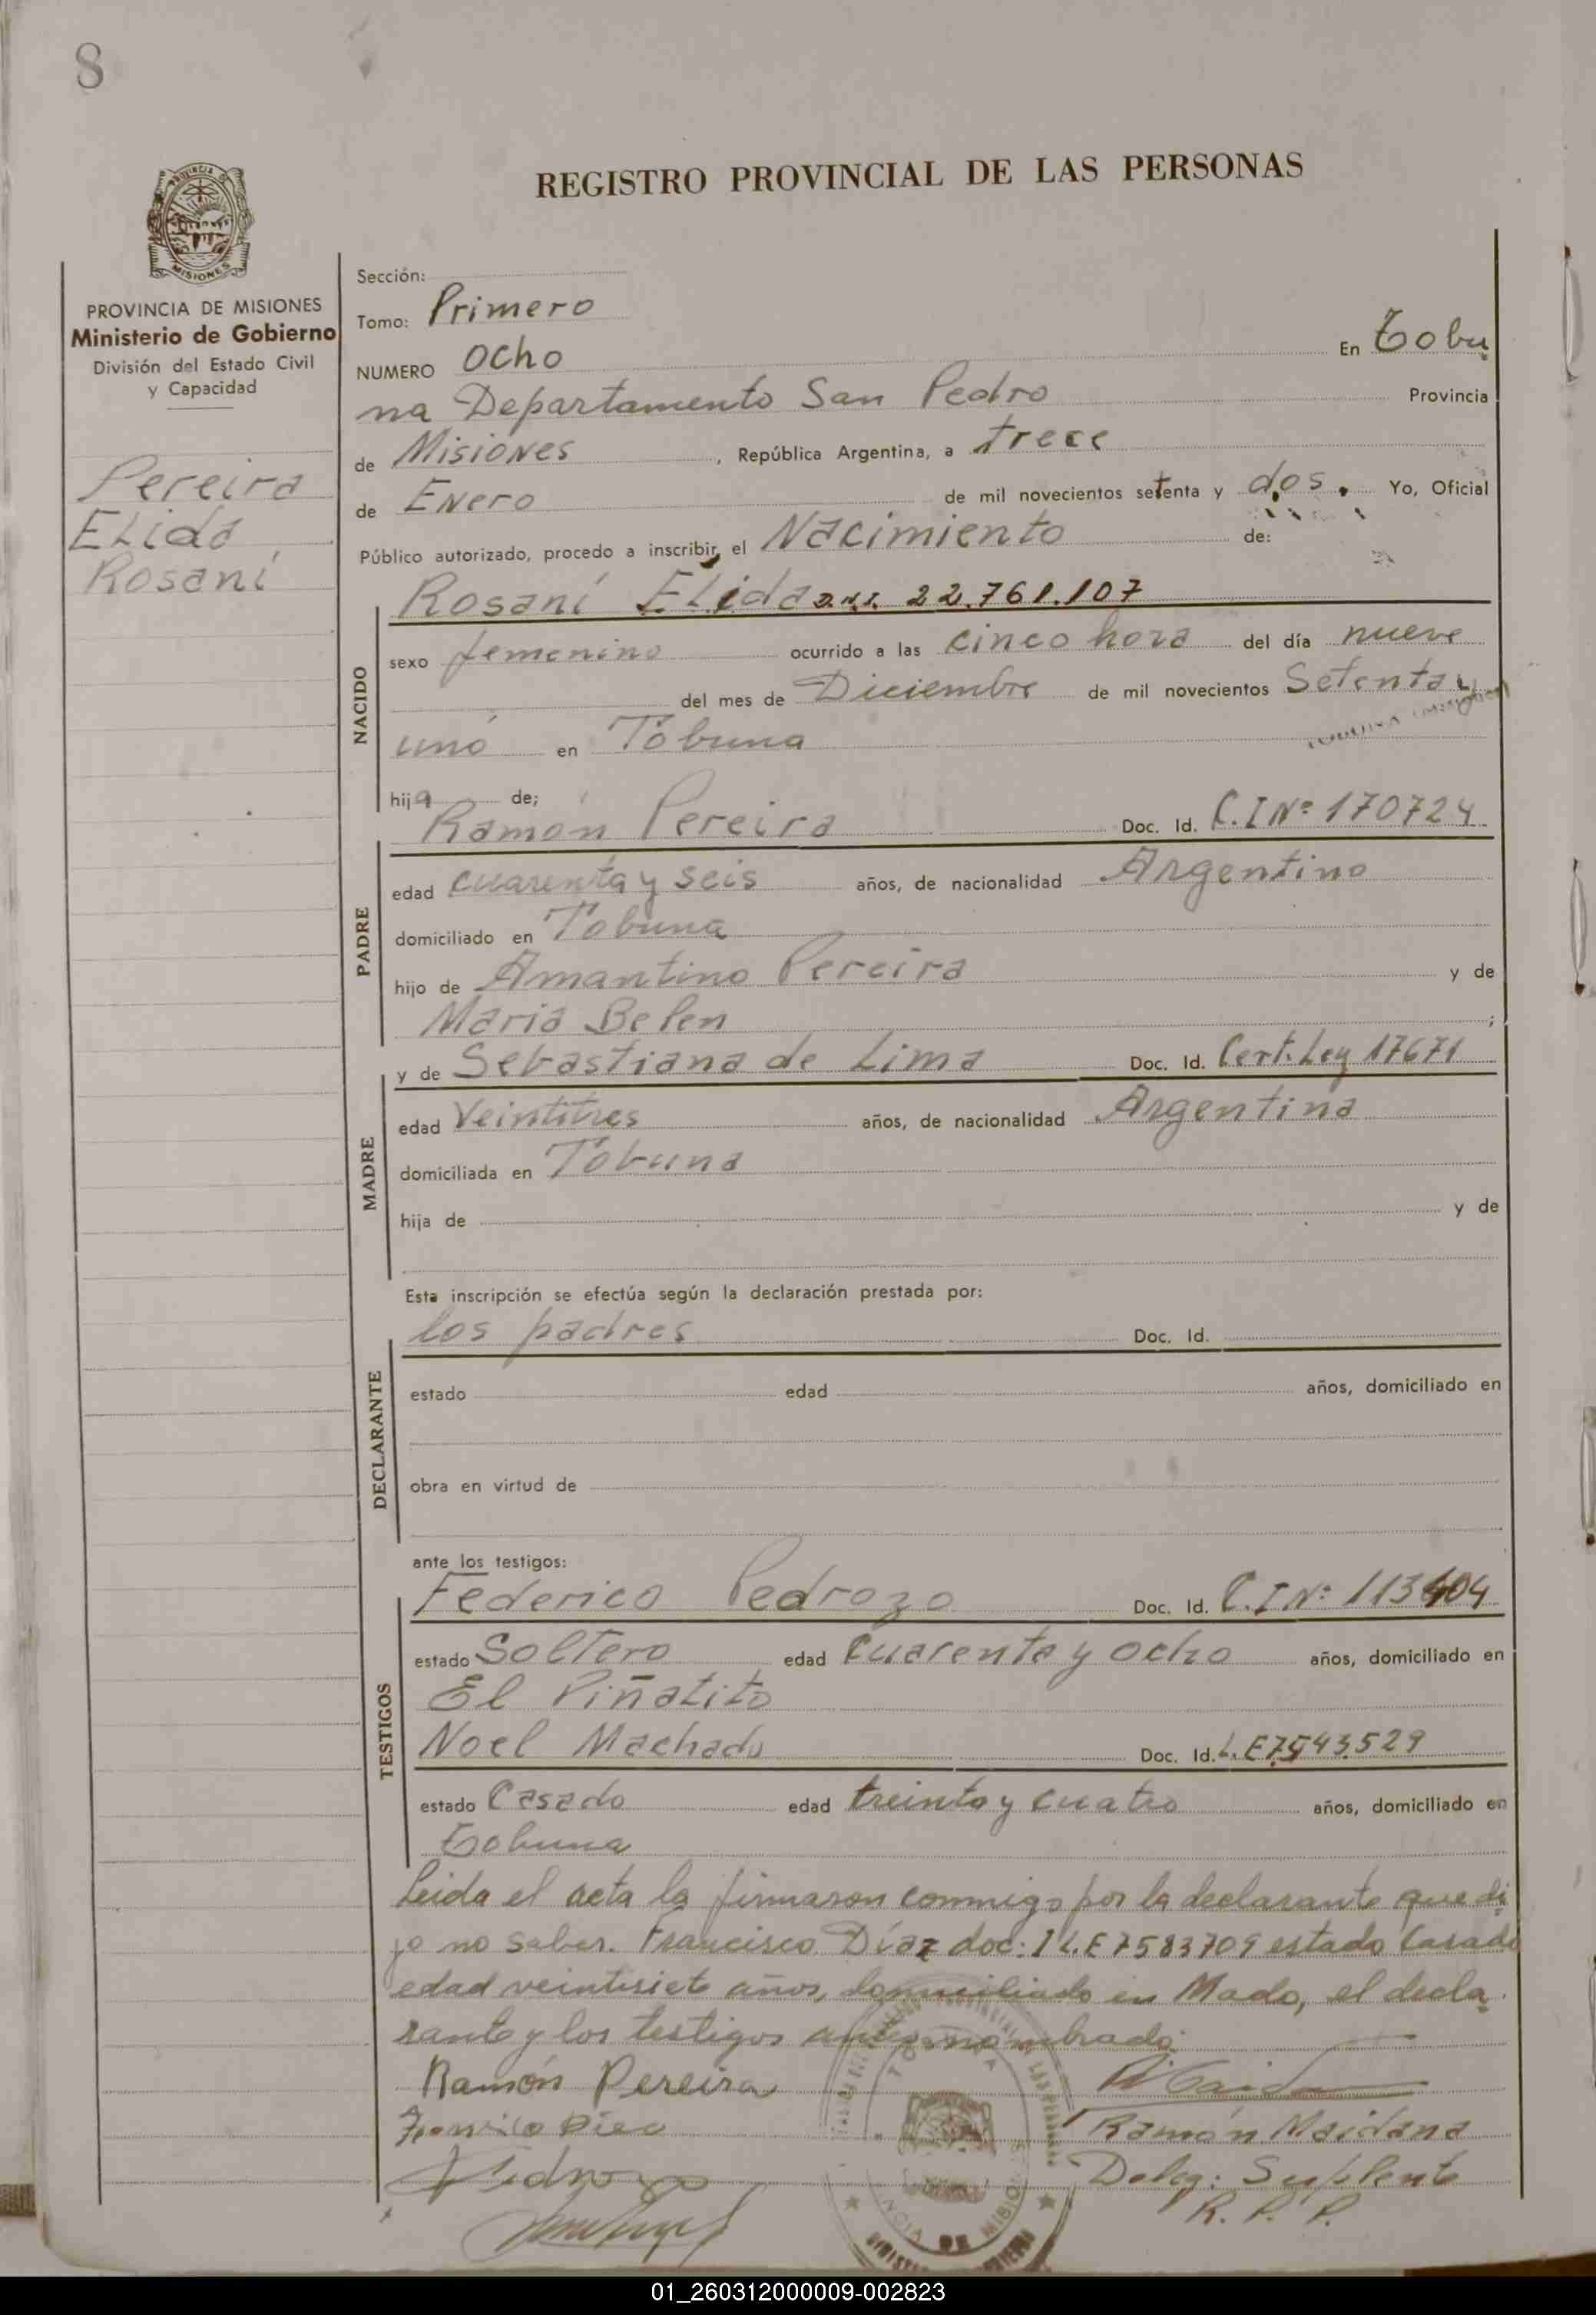 8
REGISTRO PROVINCIAL DE LAS PERSONAS
PROVINCIA DE MISIONES
Ministerio de Gobierno
División del Estado Civil
y Capacidad
Pereira
Elida
Rosaní
Sección:
Tomo: Primero
NUMERO Ocho En Tobu
na Departamento San Pedro Provincia
de Misiones, República Argentina, a trece
de Enero de mil novecientos setenta y dos. Yo, Oficial
Público autorizado, procedo a inscribir el Nacimiento de:
Rosaní Elida D.N.I. 22.761.107
NACIDO
sexo femenino ocurrido a las cinco hora del día nueve
del mes de Diciembre de mil novecientos Setenta y
uno en Tobuna
hija de;
Ramón Pereira Doc. Id. C.I Nº 170724
PADRE
edad cuarenta y seis años, de nacionalidad Argentino
domiciliado en Tobuna
hijo de Amantino Pereira y de
Maria Belen ;
y de Sebastiana de Lima Doc. Id. Cert. Ley 17671
MADRE
edad Veintitres años, de nacionalidad Argentina
domiciliada en Tobuna
hija de y de
Esta inscripción se efectúa según la declaración prestada por:
los padres Doc. Id.
DECLARANTE
estado edad años, domiciliado en
obra en virtud de
ante los testigos:
Federico Pedrozo Doc. Id. C.I Nº 113404
TESTIGOS
estado Soltero edad Cuarenta y ocho años, domiciliado en
El Piñalito
Noel Machado Doc. Id. L.E 7543529
estado Casado edad treinta y cuatro años, domiciliado en
Tobuna
Leida el acta la firmaron conmigo por la declarante que di
jo no saber. Francisco Díaz doc: L.E 7583709 estado Casado
edad veintisiete años, domiciliado en Mado, el decla
rante y los testigos antes nombrado.
Ramón Pereira
Ramón Maidana
Pedrozo
Deleg: Suplente
R. P. P.
01_260312000009-002823